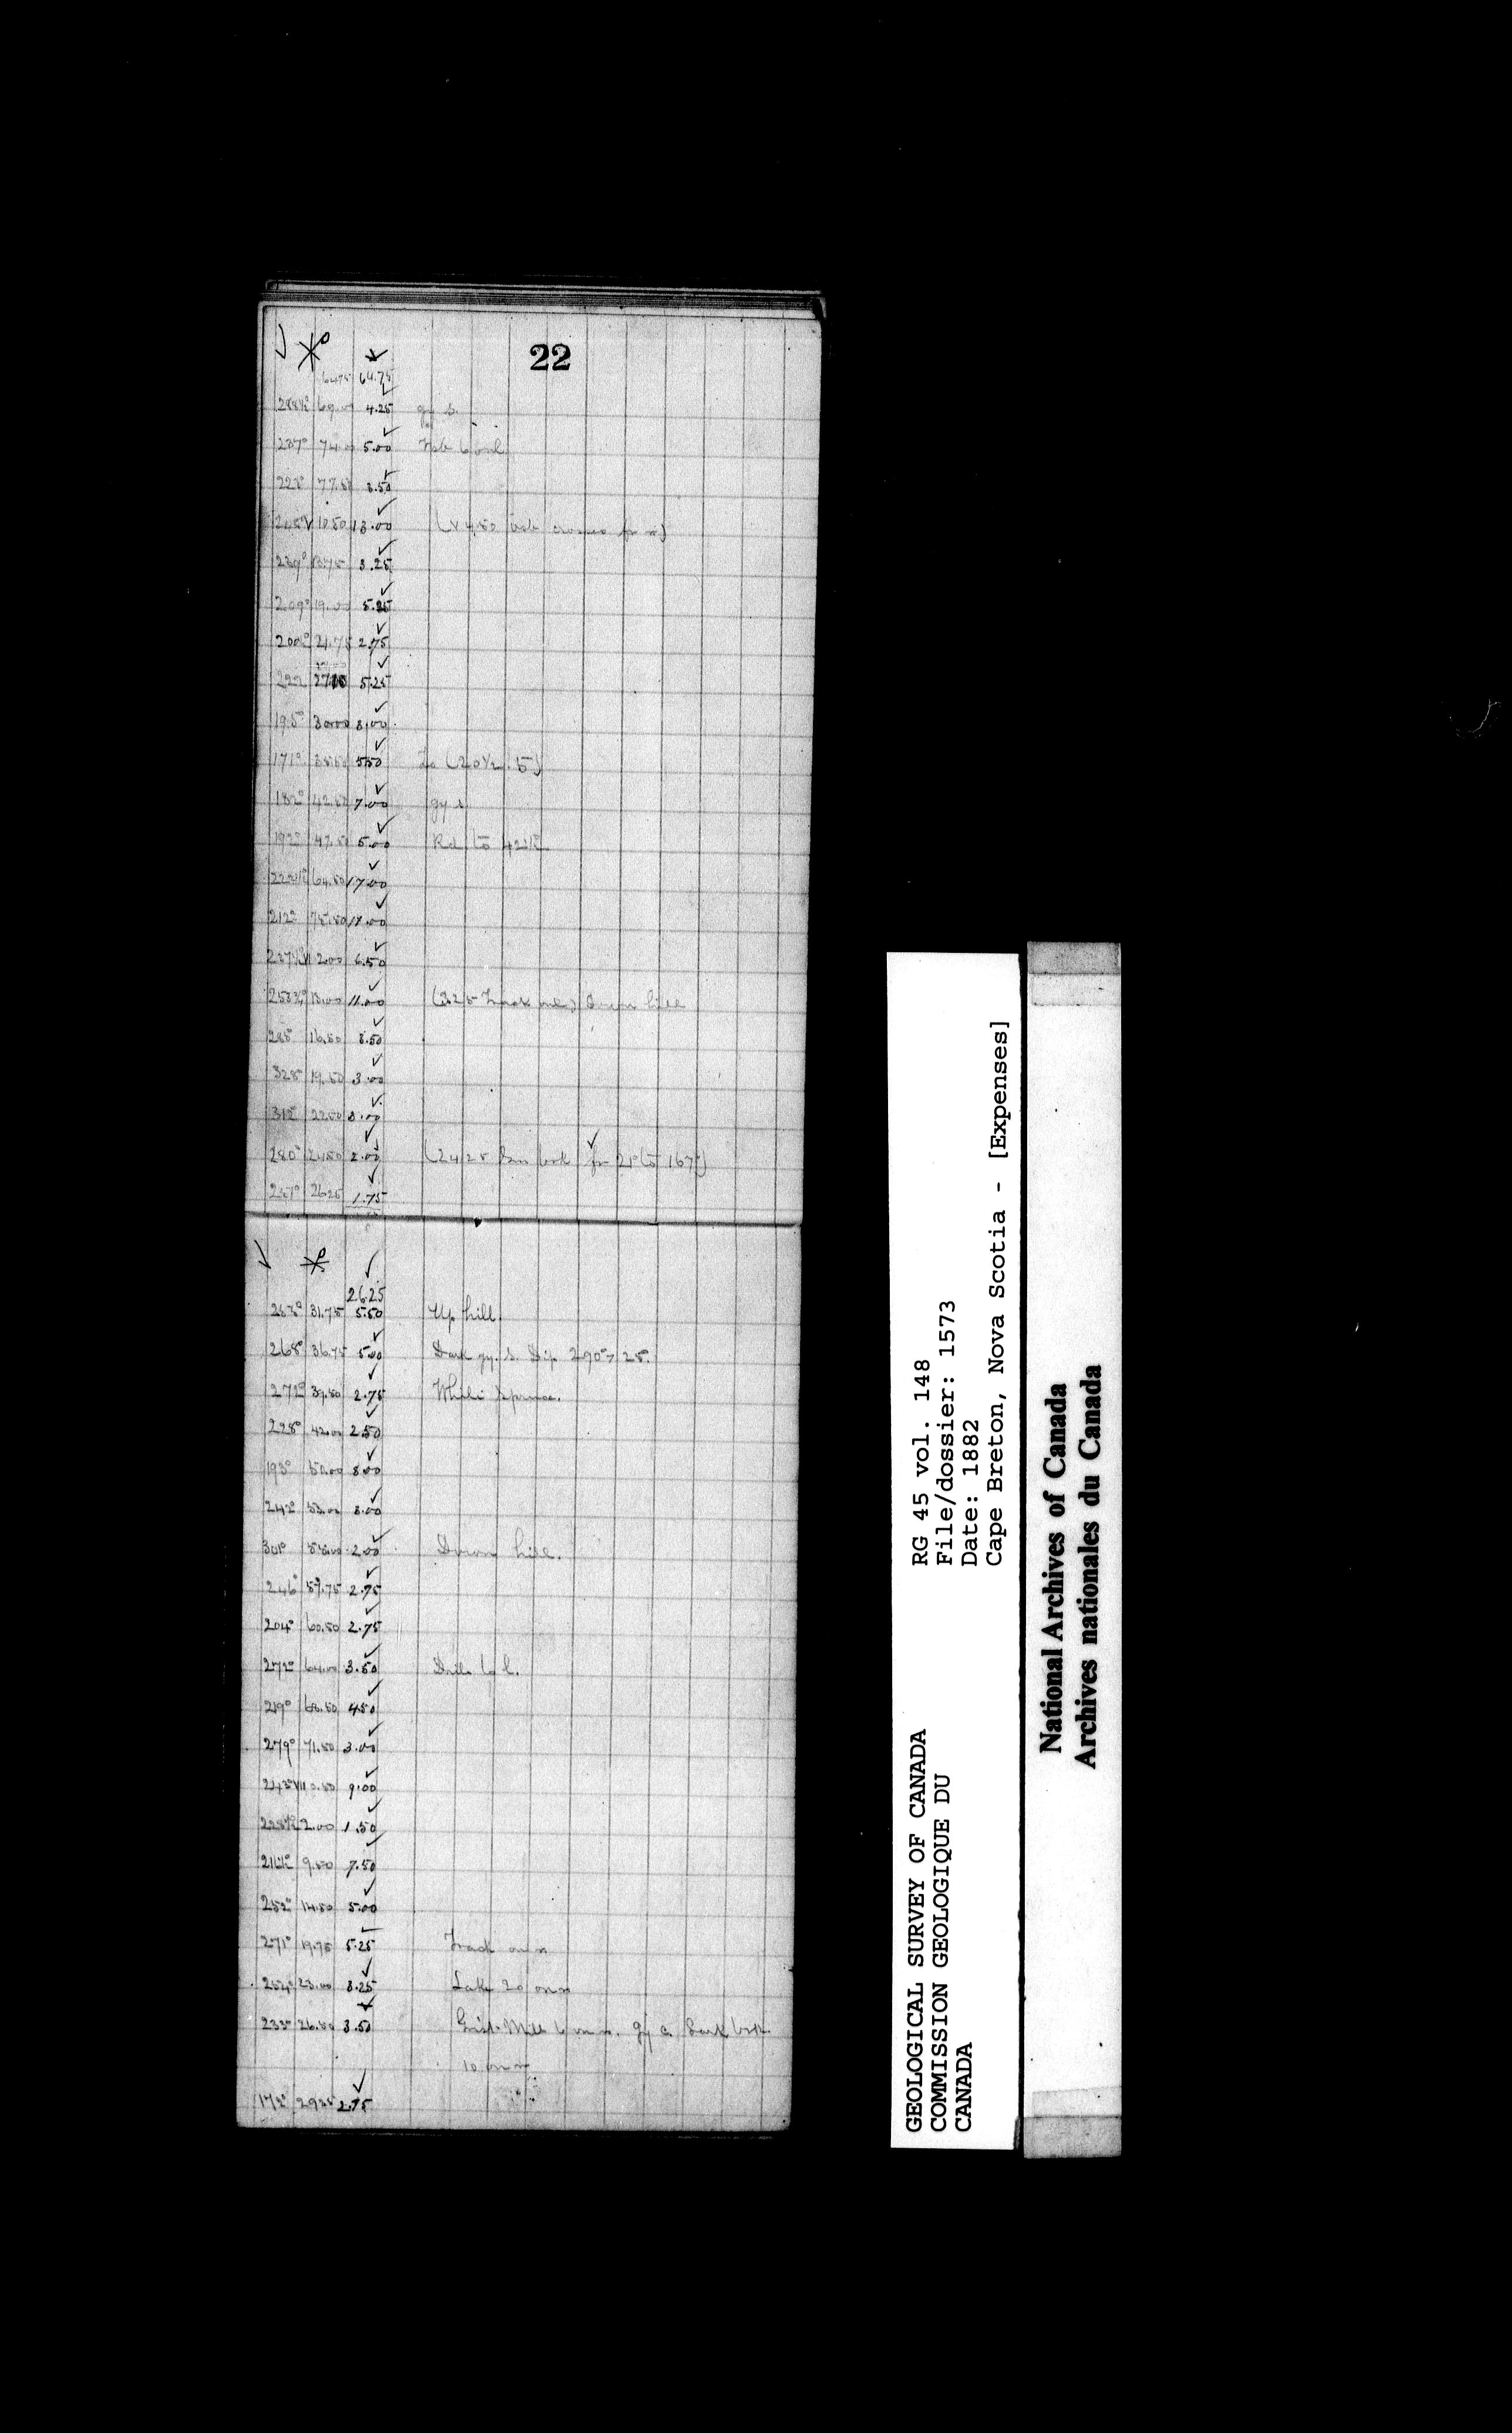 22
64.75 64.75
288½° 69.00 4.25 gy s.
237° 74.00 5.00
223° 77.50 3.50
245° V 10.50 13.00
239° 13.75 3.25
209° 19.00 5.25
21.75 2.75
222 5.25
195° 30.00 3.00
171° 5.50 (20½. 5)
182° 42.50 7.00 gy s
192° 47.50 5.00 Rd. to 42½°
222½° 64.50 17.00
212° 75.50 11.00
237½° VI 2.00 6.50
253¾° 13.00 11.00 (3.25 Track onl) Down hill
285° 16.50 3.50
325° 19.50 3.00
312° 22.50 3.00
280° 24.50 2.00 (24.25 brk fr 21° to 167°)
26.25 1.75
26.25
263° 31.75 5.50 Up hill.
268° 36.75 5.00 Dark gy. s. Dip 290° > 25.
272° 39.50 2.75 White Spruce.
298° 42.00 2.50
193° 50.00 8.00
242° 53.00 3.00
301° 55.00 2.00 Down hill.
246° 57.75 2.75
204° 60.50 2.75
272° 64.00 3.50 Ditto 6 l.
219° 68.50 4.50
279° 71.50 3.00
243° VII 0.50 9.00
228½° 2.00 1.50
211½° 9.50 7.50
252° 14.50 5.00
271° 19.75 5.25 Track on r
254° 23.00 3.25 Lake 20 on r
233° 26.50 3.50 Grist-Mill 6 on r. gy s. Dark brk
10 on r
172° 29.25 2.75
GEOLOGICAL SURVEY OF CANADA
COMMISSION GEOLOGIQUE DU
CANADA
RG 45 vol. 148
File/dossier: 1573
Date: 1882
Cape Breton, Nova Scotia - [Expenses]
National Archives of Canada
Archives nationales du Canada